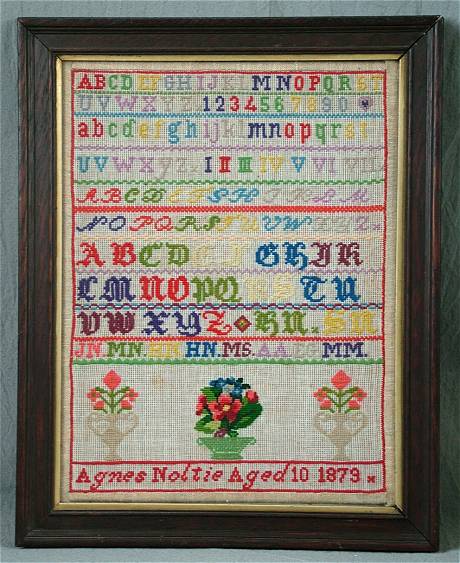 ABCDEFGHIJKLMNOPQRST
UVWXYZ. 1234567890
abcdefghijklmnopqrst
UVWXYZ I II III IV V VI VII
ABCDEFGHIJKLM
NOPQRSTUVWXYZ
ABCDEFGHIK
LMNOPQRSTU
VWXYZ HN. SN
JN. MN. HN. HN. MS. AA. MM.
Agnes Noltie Aged 10 1879